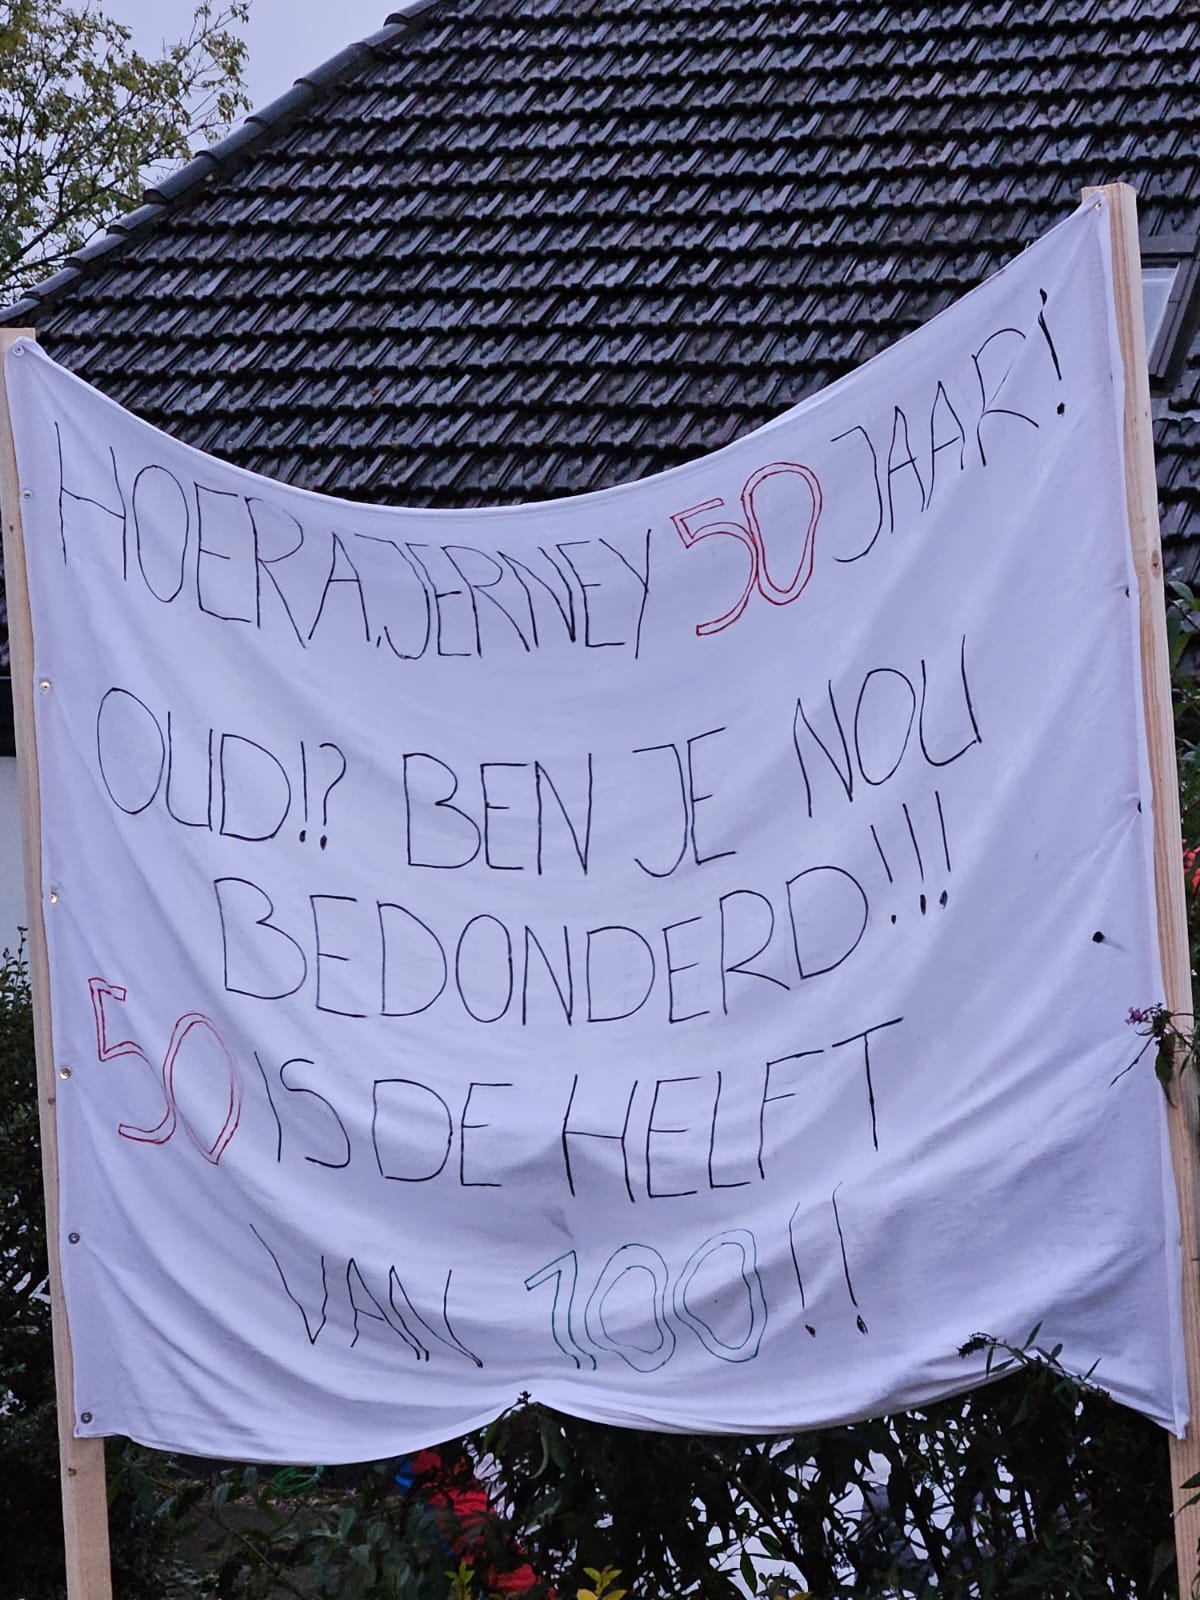 HOERA, JERNEY 50 JAAR!
OUD!? BEN JE NOU
BEDONDERD!!!
50 IS DE HELFT
VAN 100!!